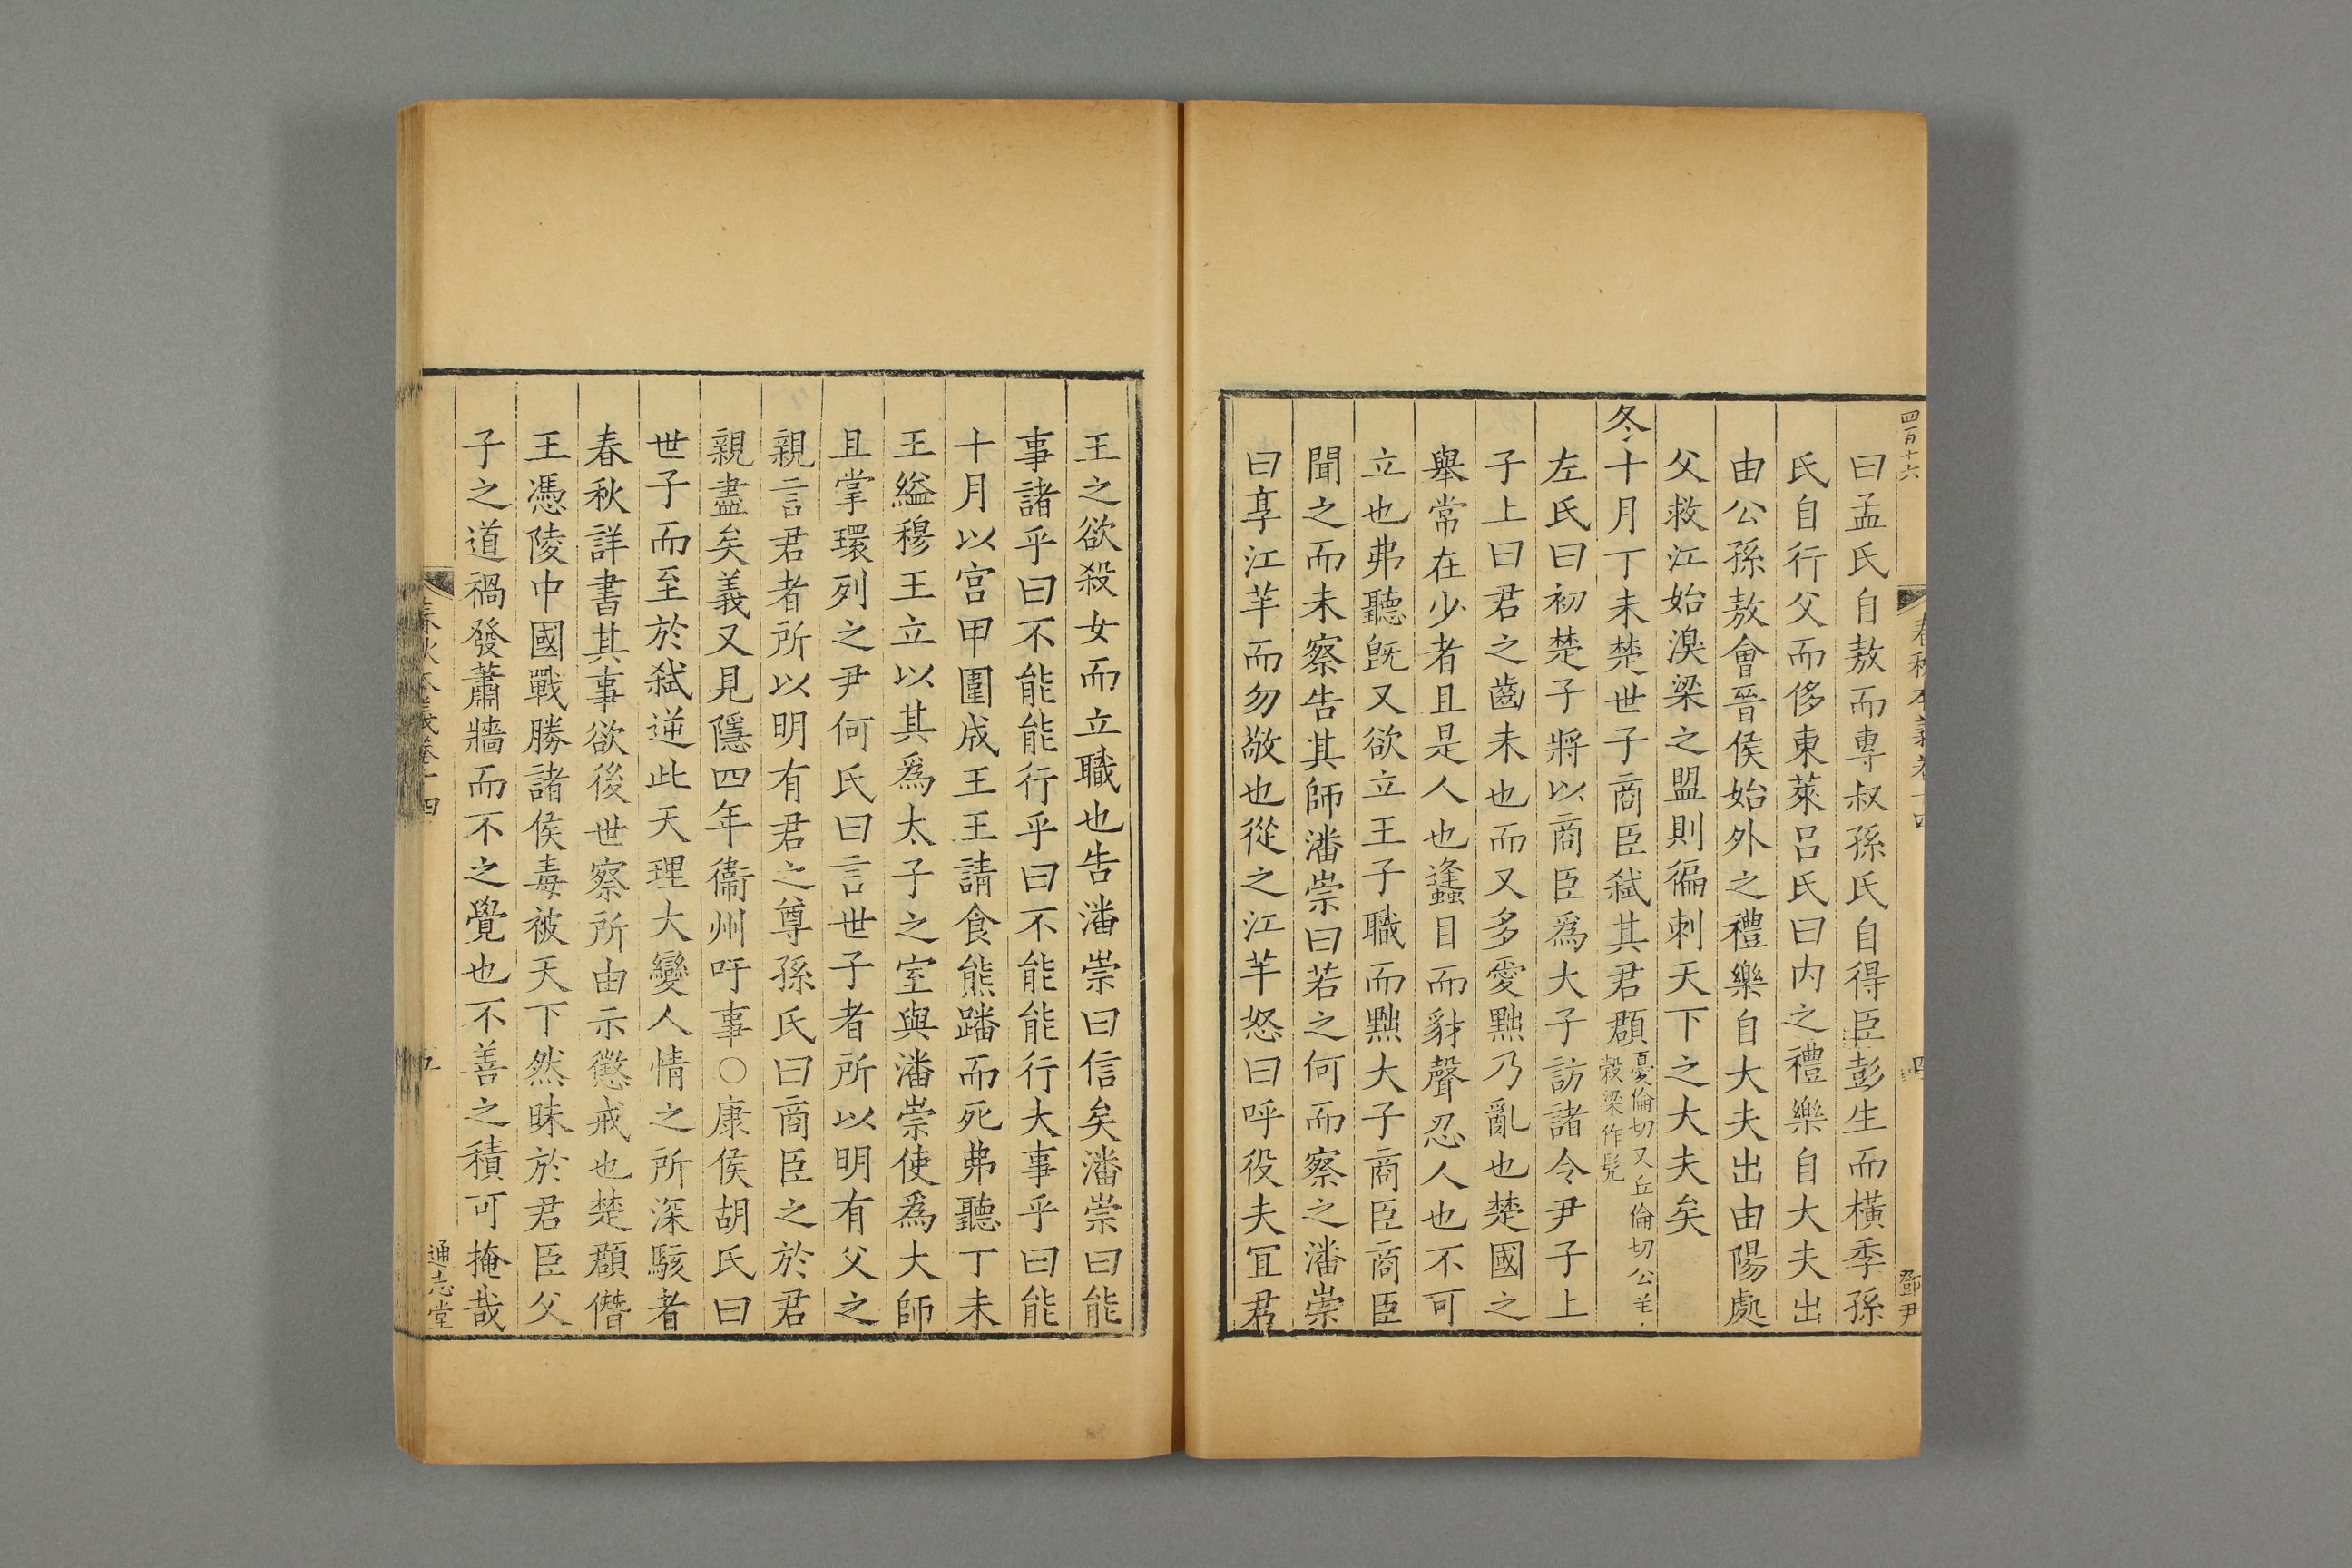 四百十六
春秋本義卷十四
四
鄧尹
曰孟氏自敖而專叔孫氏自得臣彭生而橫季孫
氏自行父而侈東萊呂氏曰内之禮樂自大夫出
由公孫敖會晉侯始外之禮樂自大夫出由陽處
父救江始溴梁之盟則徧刺天下之大夫矣
冬十月丁未楚世子商臣弑其君頵憂倫切又丘倫切公羊穀梁作髡
左氏曰初楚子將以商臣爲大子訪諸令尹子上
子上曰君之齒未也而又多愛黜乃亂也楚國之
舉常在少者且是人也蠭目而豺聲忍人也不可
立也弗聽旣又欲立王子職而黜大子商臣商臣
聞之而未察告其師潘崇曰若之何而察之潘崇
曰享江芊而勿敬也從之江芊怒曰呼役夫冝君
王之欲殺女而立職也告潘崇曰信矣潘崇曰能
事諸乎曰不能能行乎曰不能能行大事乎曰能
十月以宫甲圍成王王請食熊蹯而死弗聽丁未
王縊穆王立以其爲太子之室與潘崇使爲大師
且掌環列之尹何氏曰言世子者所以明有父之
親言君者所以明有君之尊孫氏曰商臣之於君
親盡矣義又見隱四年衞州吁事○康侯胡氏曰
世子而至於弑逆此天理大變人情之所深駭者
春秋詳書其事欲後世察所由示懲戒也楚頵僭
王憑陵中國戰勝諸侯毒被天下然昧於君臣父
子之道禍發蕭牆而不之覺也不善之積可掩哉
春秋本義卷十四
五
通志堂